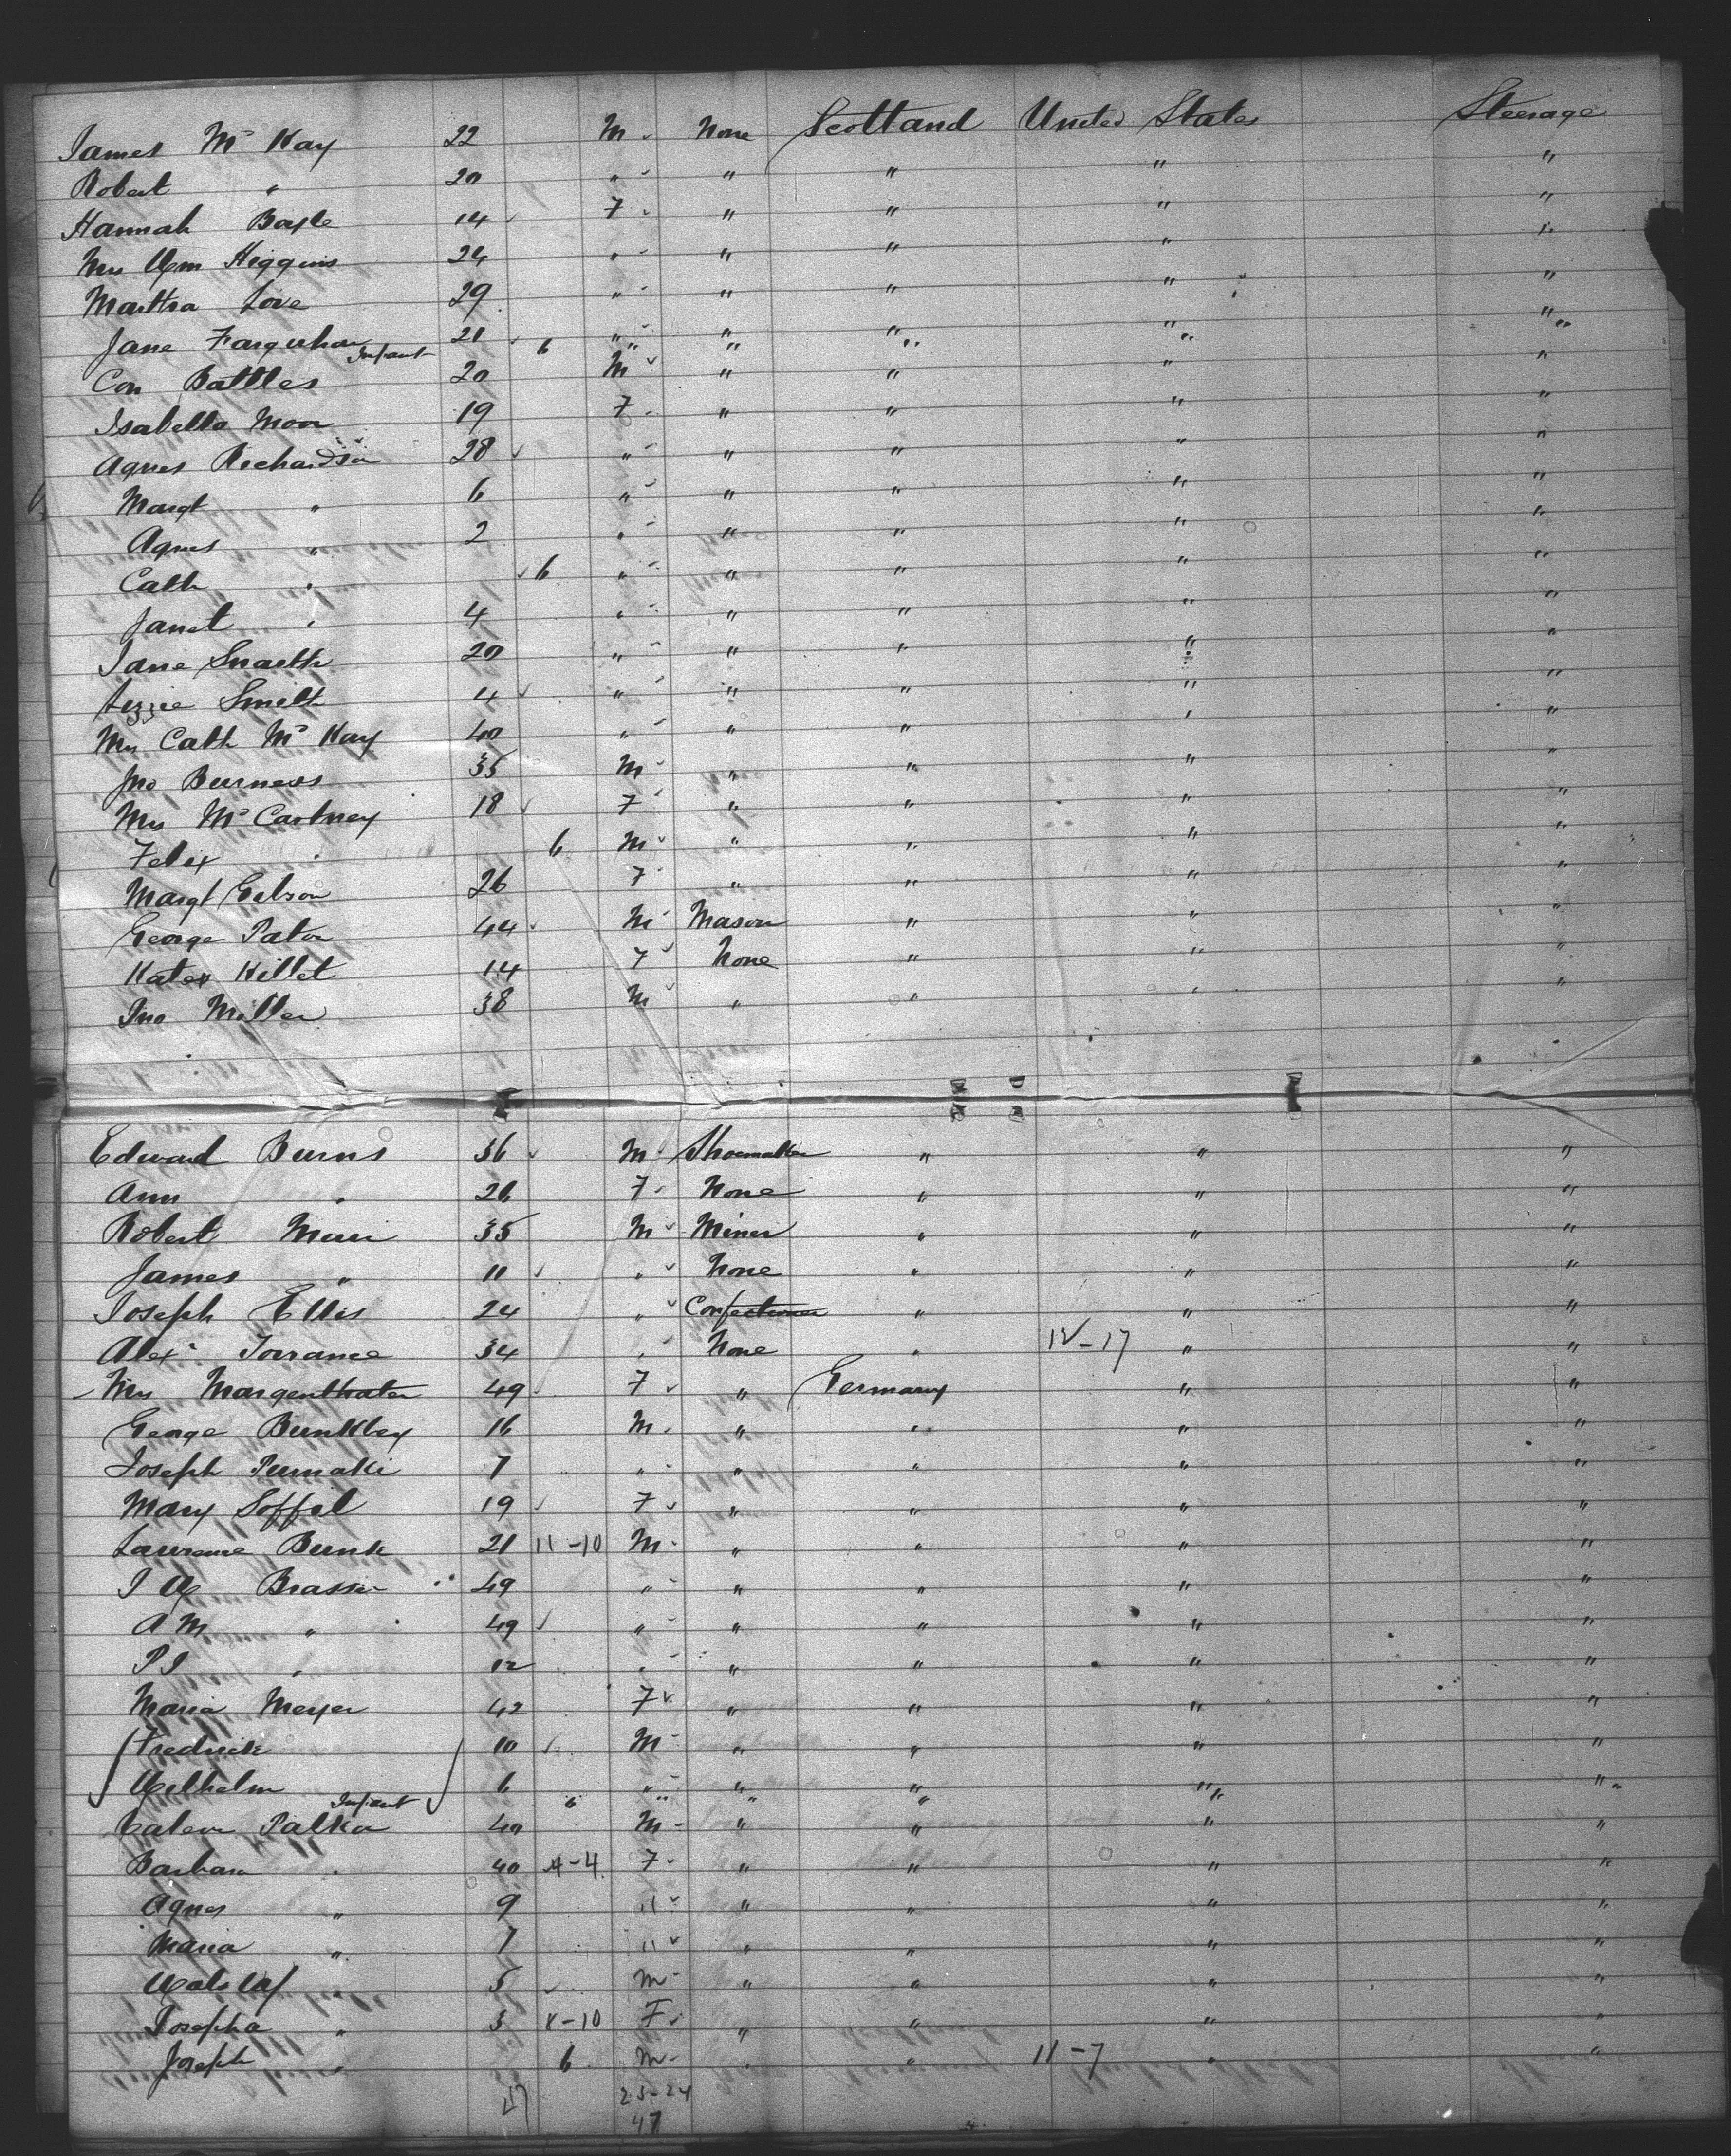 James Mc Kay 22 M None Scotland United States Steerage
Robert " 20 " " " " "
Hannah Boyle 14 F " " " "
Mrs Wm Higgins 24 " " " " "
Martha Love 29 " " " " "
Jane Farquhar 21 " " " " "
Infant 6 " " " " "
Con Battles 20 M " " " "
Isabella Moor 19 F " " " "
Agnes Richardson 28 " " " " "
Margt " 6 " " " " "
Agnes " 2 " " " " "
Cath " 6 " " " " "
Janet " 4 " " " " "
Jane Snaith 20 " " " " "
Lizzie Smith 4 " " " " "
Mrs Cath Mc Kay 40 " " " " "
Jno Burness 35 M " " " "
Mrs Mc Cartney 18 F " " " "
Felix " 6 M " " " "
Margt Gibson 26 F " " " "
George Paton 44 M Mason " " "
Kate Killet 14 F None " " "
Jno Miller 38 M " " " "
Edward Burns 36 M Shoemaker " " "
Ann " 26 F None " " "
Robert Muir 35 M Miner " " "
James " 11 " None " " "
Joseph Ellis 24 " Confectioner " " "
Alex Torrance 34 " None " 12-17 " "
Mrs Margenthater 49 F " Germany " "
George Bunkley 16 M " " " "
Joseph Pumaki 7 " " " " "
Mary Soffel 19 F " " " "
Lawrence Bunk 21 11-10 M " " " "
J W Brasser 49 " " " " "
A M " 49 " " " " "
P J " 12 " " " " "
Maria Meyer 42 F " " " "
Fredrick 10 M " " " "
Wilhelm 6 " " " " "
Infant 6 " " " " "
Palka 40 M " " " "
Barbara " 40 4-4 F " " " "
Agnes " 9 " " " " "
Maria " 7 " " " " "
" 5 M " " " "
Josepha " 3 8-10 F " " " "
Joseph " 6 M " " 11-7 " "
47 23-24
47